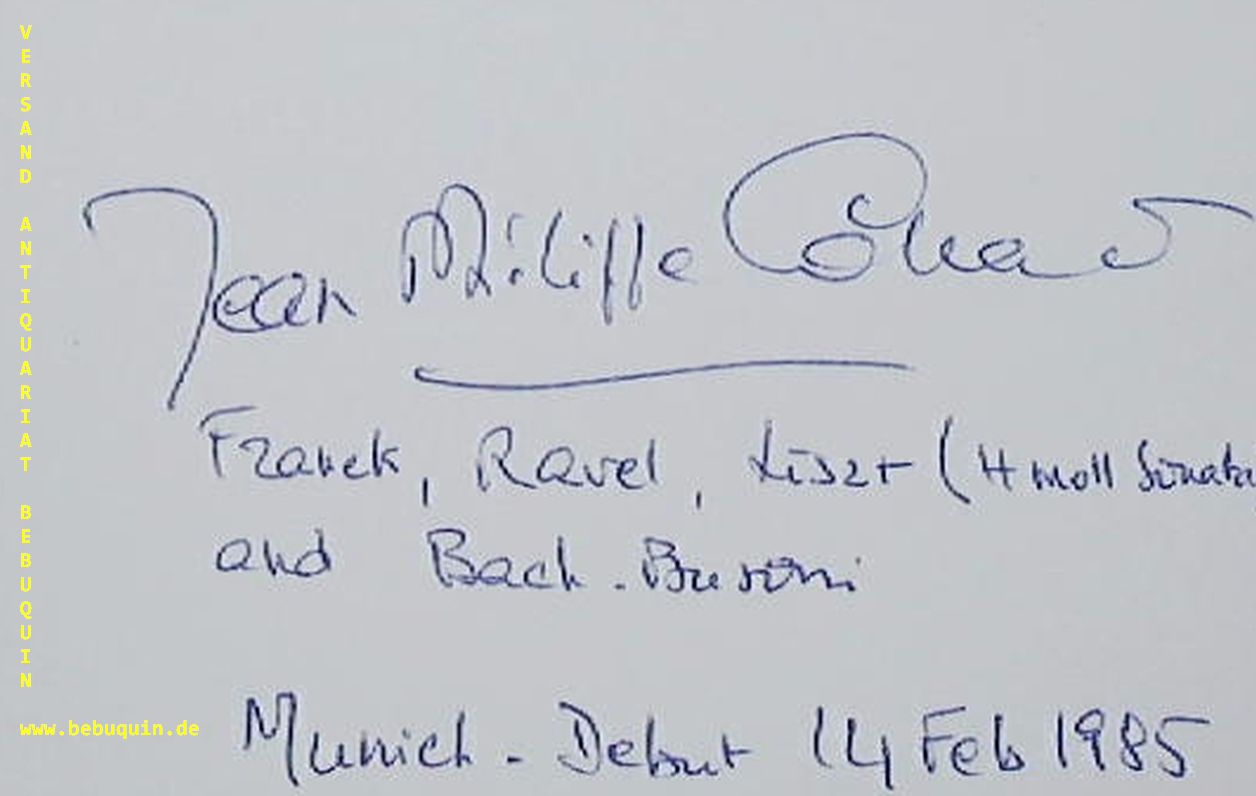 VERSAND ANTIQUARIAT BEBUQUIN
www.bebuquin.de
Jean Philippe Collard
Franck, Ravel, Liszt (H moll Sonata
and Bach - Busoni
Munich - Debut 14 Feb 1985